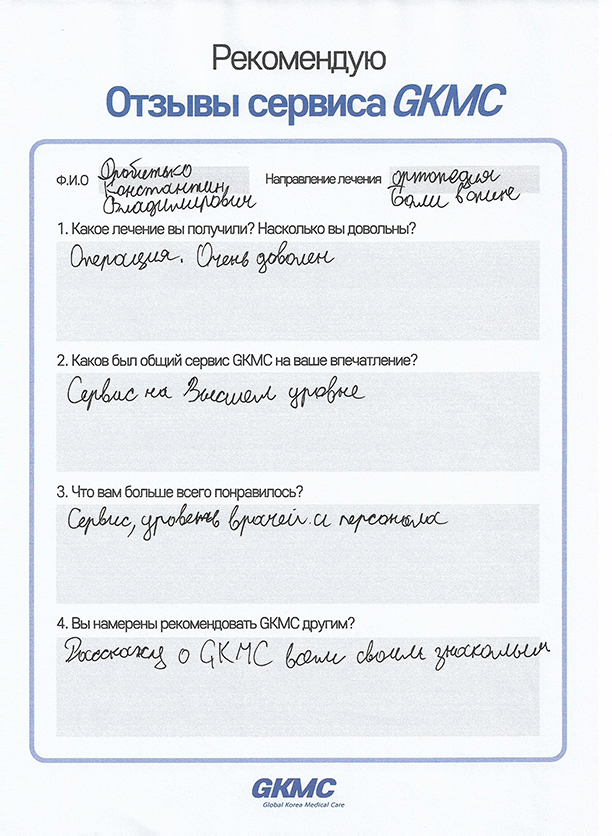 Рекомендую
Отзывы сервиса GKMC
Ф.И.О
Дробитько
Константин
Владимирович
Направление лечения
ортопедия
Боли в спине
1. Какое лечение вы получили? Насколько вы довольны?
Операция. Очень доволен
2. Каков был общий сервис GKMC на ваше впечатление?
Сервис на Высшем уровне
3. Что вам больше всего понравилось?
Сервис, уровень врачей и персонала
4. Вы намерены рекомендовать GKMC другим?
Расскажу о GKMC всем своим знакомым
GKMC
Global Korea Medical Care